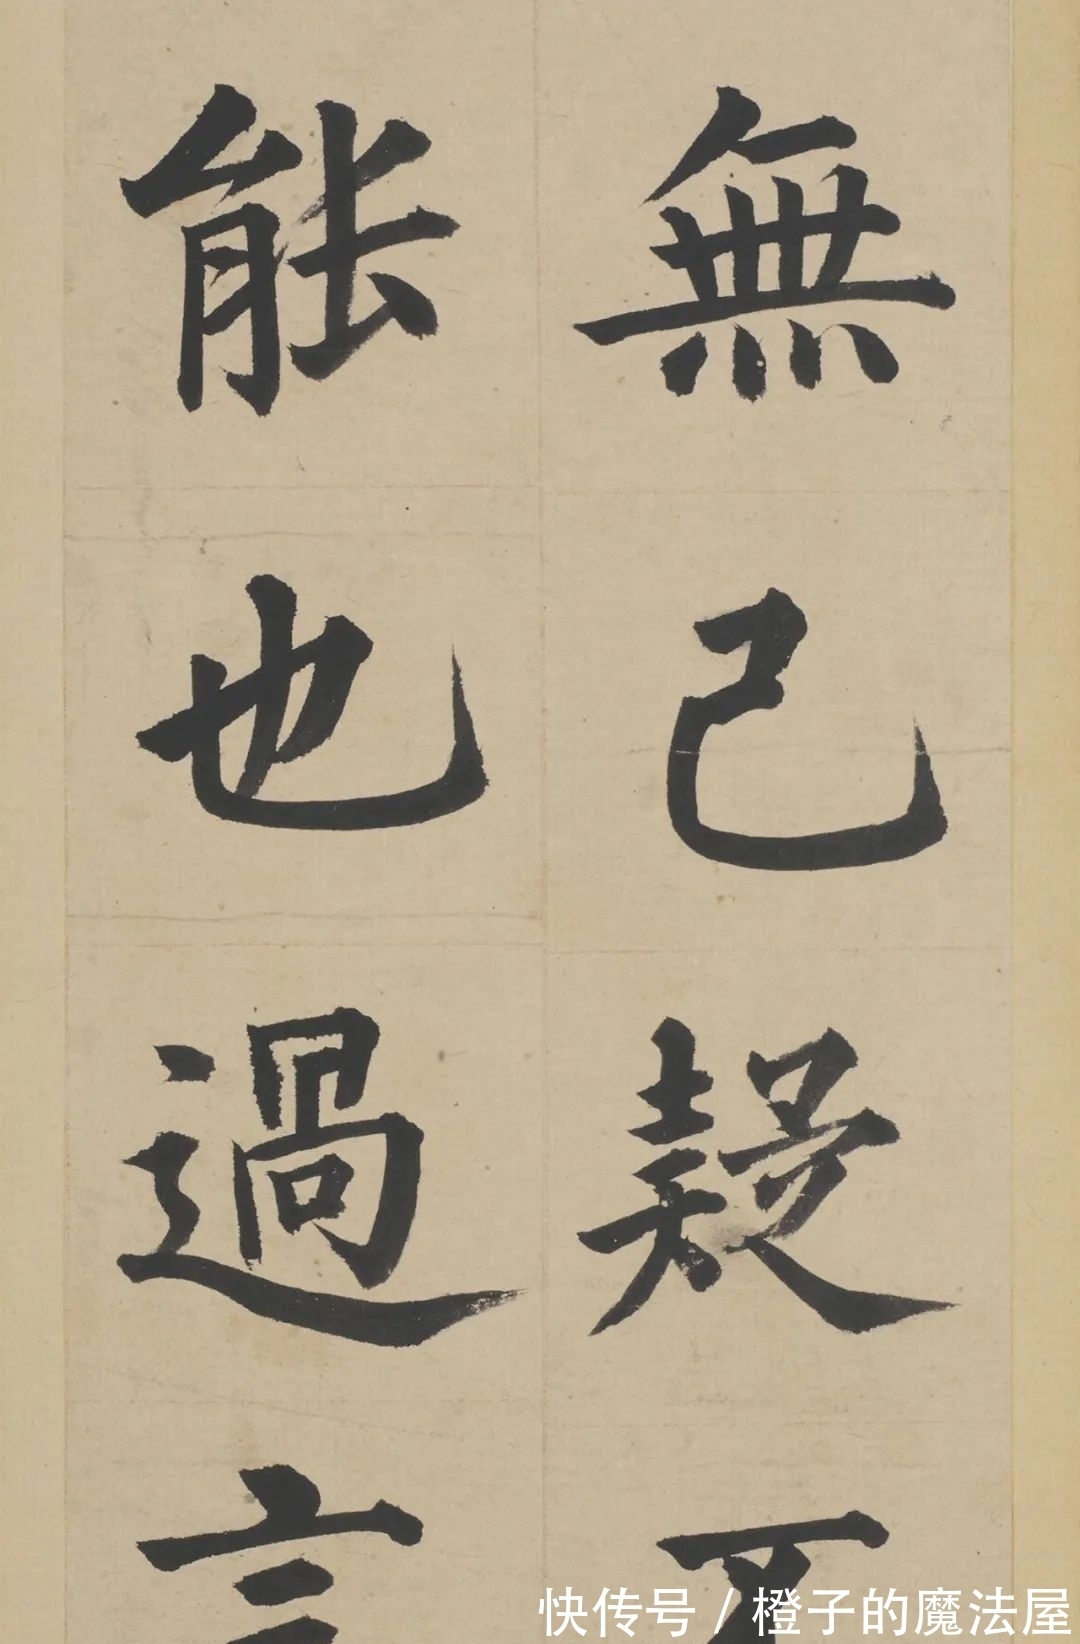 無己疑
能也過言
快传号 / 橙子的魔法屋